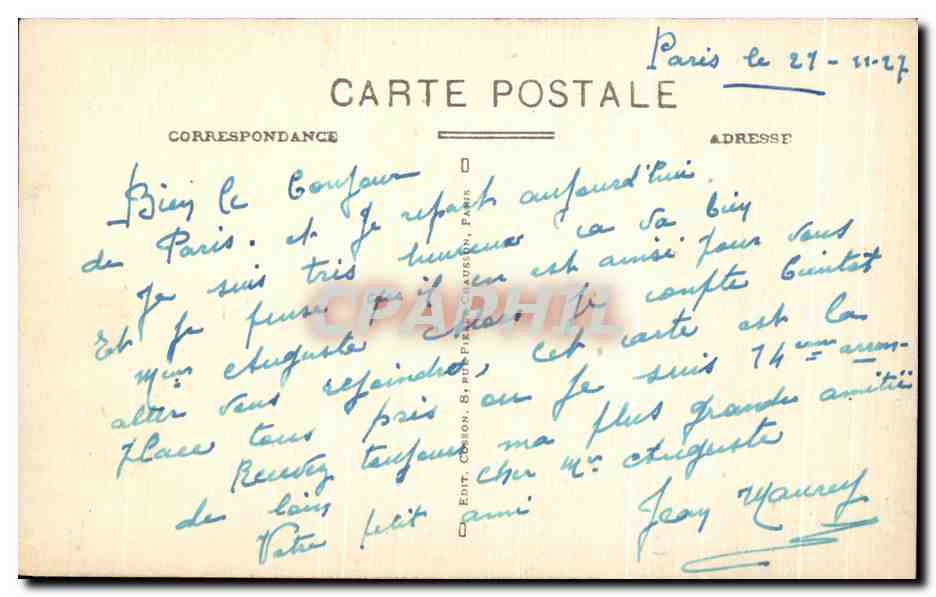 Paris le 27-11-27
CARTE POSTALE
CORRESPONDANCE
ADRESSE
Bien le bonjour
de Paris. et je repart aujourd'hui
Je suis très heureux ca va bien
Et je pense qu'il en est ainsi pour vous
Mme Auguste je compte bientot
aller vous rejoindre, cet carte est la
place tous près ou je suis 14eme arron-
Recevez toujours ma plus grandes amitiés
de loin Cher Mr Auguste
Votre petit ami Jean
EDIT. COSSON, 8, RUE PIERRE-CHAUSSON, PARIS
CPAPHIL